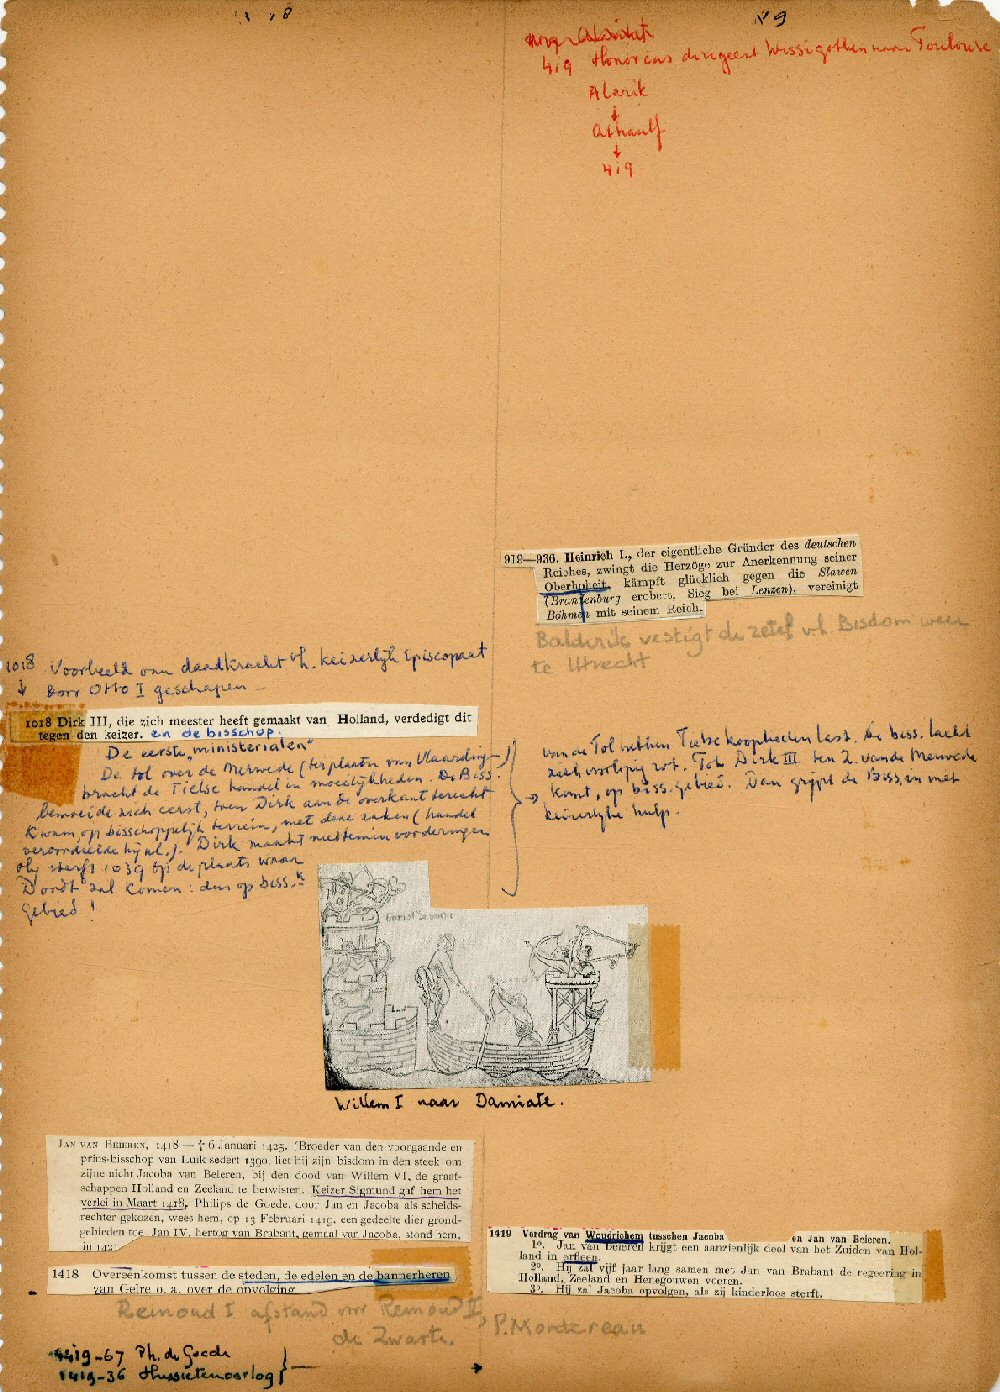 18
19
419 Honorius dirigeert Wissigothen naar Toulouse
Alarik
↓
Athaulf
↓
419
919—936. Heinrich I., der eigentliche Gründer des deutschen
Reiches, zwingt die Herzöge zur Anerkennung seiner
Oberhoheit, kämpft glücklich gegen die Slawen
(Brandenburg erobert, Sieg bei Lenzen), vereinigt
Böhmen mit seinem Reich.
Balderik vestigt de zetel v.h. Bisdom weer
te Utrecht
1018 Voorbeeld van daadkracht v.h. keizerlijk Episcopaat
↓ door Otto I geschapen —
1018 Dirk III, die zich meester heeft gemaakt van Holland, verdedigt dit
tegen den keizer. en de bisschop.
De eerste "ministerialen"
De tol over de Merwede (ter plaatse van Vlaarding-)
bracht de Tielse handel in moeilijkheden. De Biss.
bemoeide zich eerst, toen Dirk aan de overkant terecht
kwam op bisschoppelijk terrein, met deze zaken (handel
veroordeelde hij al.). Dirk maakt niettemin vorderingen
Hij sterft 1039 op de plaats waar
Dordt zal komen: dus op biss.
gebied!
van de Tol hebben Tielse kooplieden last. De biss. lacht
zich voorlopig rot. Tot Dirk III ten Z. van de Merwede
komt, op biss. gebied. Dan grijpt de Biss. in met
keizerlijke hulp.
Willem I naar Damiate.
JAN VAN BEIEREN, 1418 — † 6 Januari 1425. (Broeder van den voorgaande en
prins-bisschop van Luik sedert 1390, liet hij zijn bisdom in den steek om
zijne nicht Jacoba van Beieren, bij den dood van Willem VI, de graaf-
schappen Holland en Zeeland te betwisten. Keizer Sigmund gaf hem het
verlei in Maart 1418. Philips de Goede, door Jan en Jacoba als scheids-
rechter gekozen, wees hem, op 13 Februari 1419, een gedeelte dier grond-
gebieden toe. Jan IV, hertog van Brabant, gemaal van Jacoba, stond hem,
1418 Overeenkomst tusschen de steden, de edelen en de bannerheren
van Gelre o. a. over de opvolging
1419 Verdrag van Woudrichem tusschen Jacoba en Jan van Beieren.
1º. Jan van Beieren krijgt een aanzienlijk deel van het Zuiden van Hol-
land in erfleen.
2º. Hij zal vijf jaar lang samen met Jan van Brabant de regeering in
Holland, Zeeland en Henegouwen voeren.
3º. Hij zal Jacoba opvolgen, als zij kinderloos sterft.
Reinoud I afstand voor Reinoud II,
de Zwarte.
P. Mordereau
1419-67 Ph. de Goede
1419-36 Hussietenoorlog